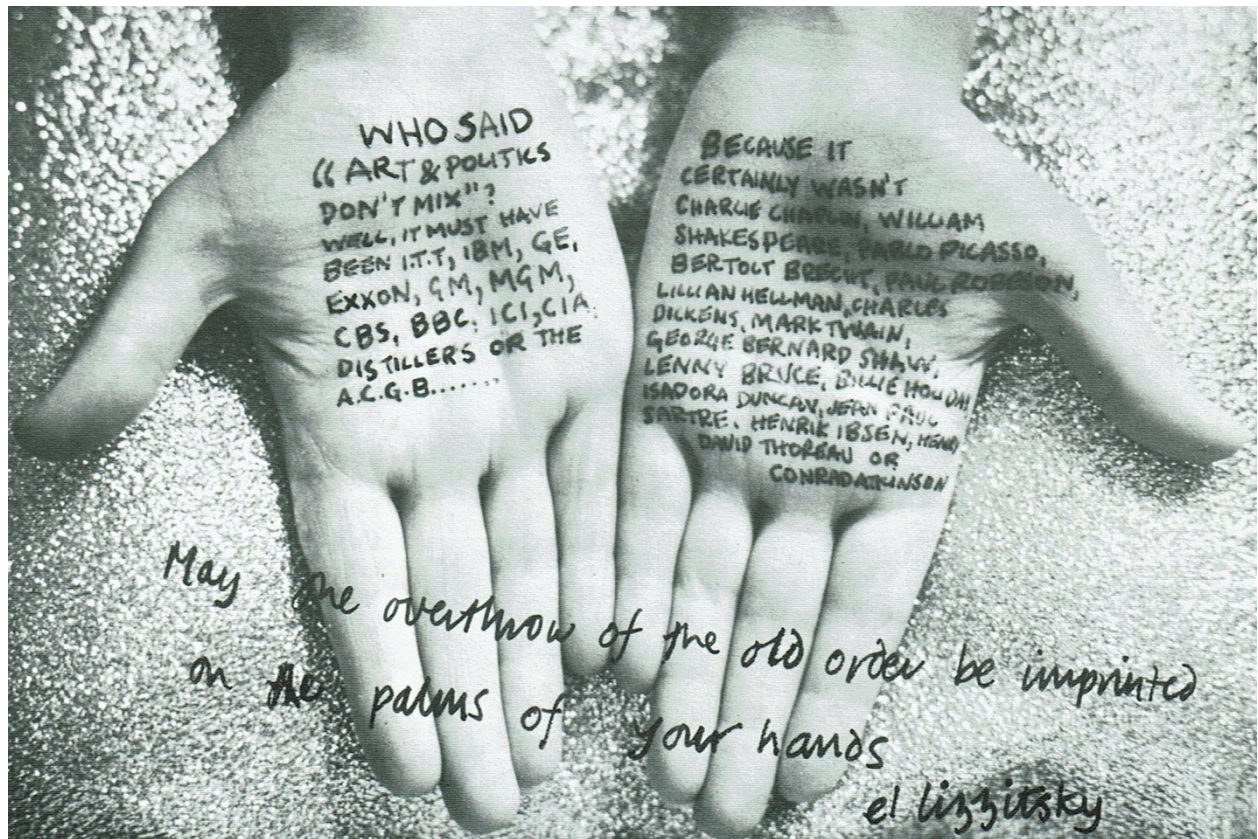 WHO SAID
“ART & POLITICS
DON'T MIX"?
WELL, IT MUST HAVE
BEEN I.T.T, IBM, GE,
EXXON, GM, MGM,
CBS, BBC, ICI, CIA
DISTILLERS OR THE
A.C.G.B.......
BECAUSE IT
CERTAINLY WASN'T
CHARLIE CHAPLIN, WILLIAM
SHAKESPEARE, PABLO PICASSO,
BERTOLT BRECHT, PAUL ROBESON,
LILLIAN HELLMAN, CHARLES
DICKENS, MARK TWAIN,
GEORGE BERNARD SHAW,
LENNY BRUCE, BILLIE HOLIDAY
ISADORA DUNCAN, JEAN PAUL
SARTRE, HENRIK IBSEN, HENRY
DAVID THOREAU OR
CONRAD ATKINSON
May the overthrow of the old order be imprinted
on the palms of your hands
el lizzitsky